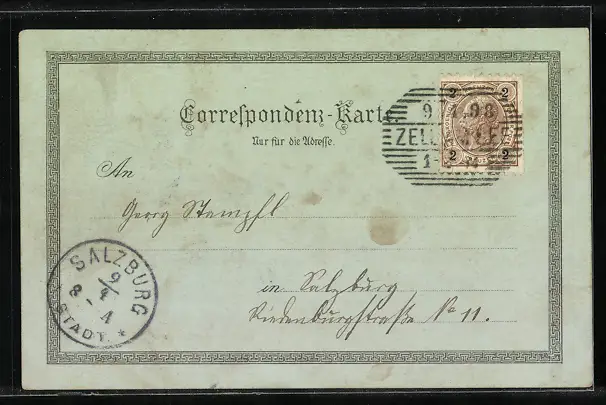 Correspondenz-Karte.
Nur für die Adresse.
2 2
9 4 98
ZELL
2 2
An
Georg Stampfl
in Salzburg
Riedenburgstraße No 11.
SALZBURG
9/4
8 4
STADT. *